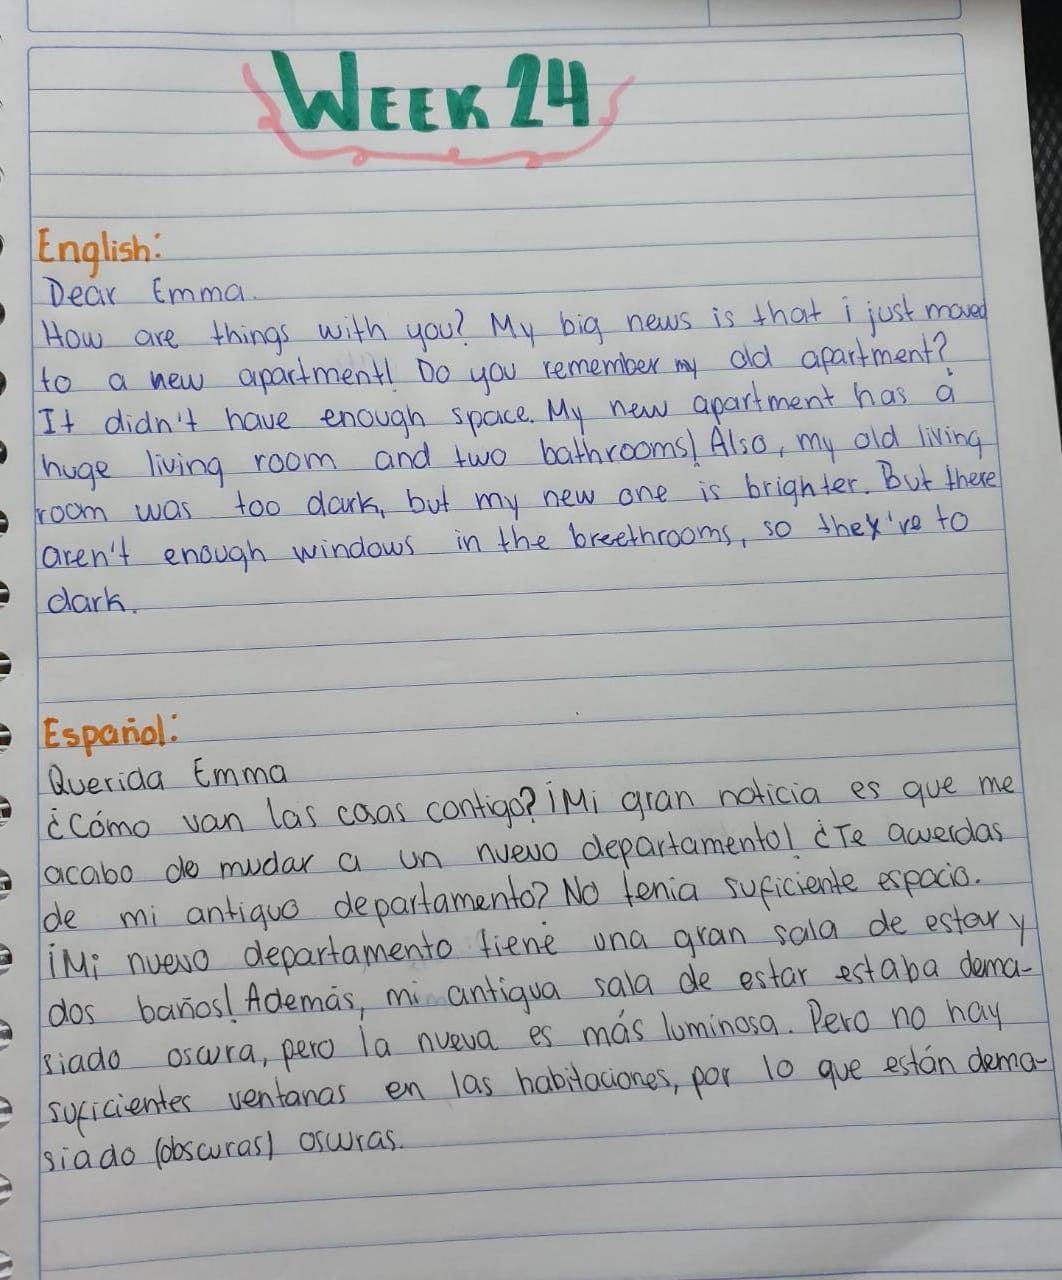 WEEK 24
English:
Dear Emma.
How are things with you? My big news is that i just moved
to a new apartment! Do you remember my old apartment?
It didn't have enough space. My new apartment has a
huge living room and two bathrooms! Also, my old living
room was too dark, but my new one is brighter. But there
aren't enough windows in the breethrooms, so they're to
dark.
Español:
Querida Emma
¿Cómo van las cosas contigo? ¡Mi gran noticia es que me
acabo de mudar a un nuevo departamento! ¿Te acuerdas
de mi antiguo departamento? No tenia suficiente espacio.
¡Mi nuevo departamento tiene una gran sala de estar y
dos baños! Además, mi antigua sala de estar estaba dema-
siado oscura, pero la nueva es más luminosa. Pero no hay
suficientes ventanas en las habitaciones, por lo que están dema-
siado (obscuras) oscuras.